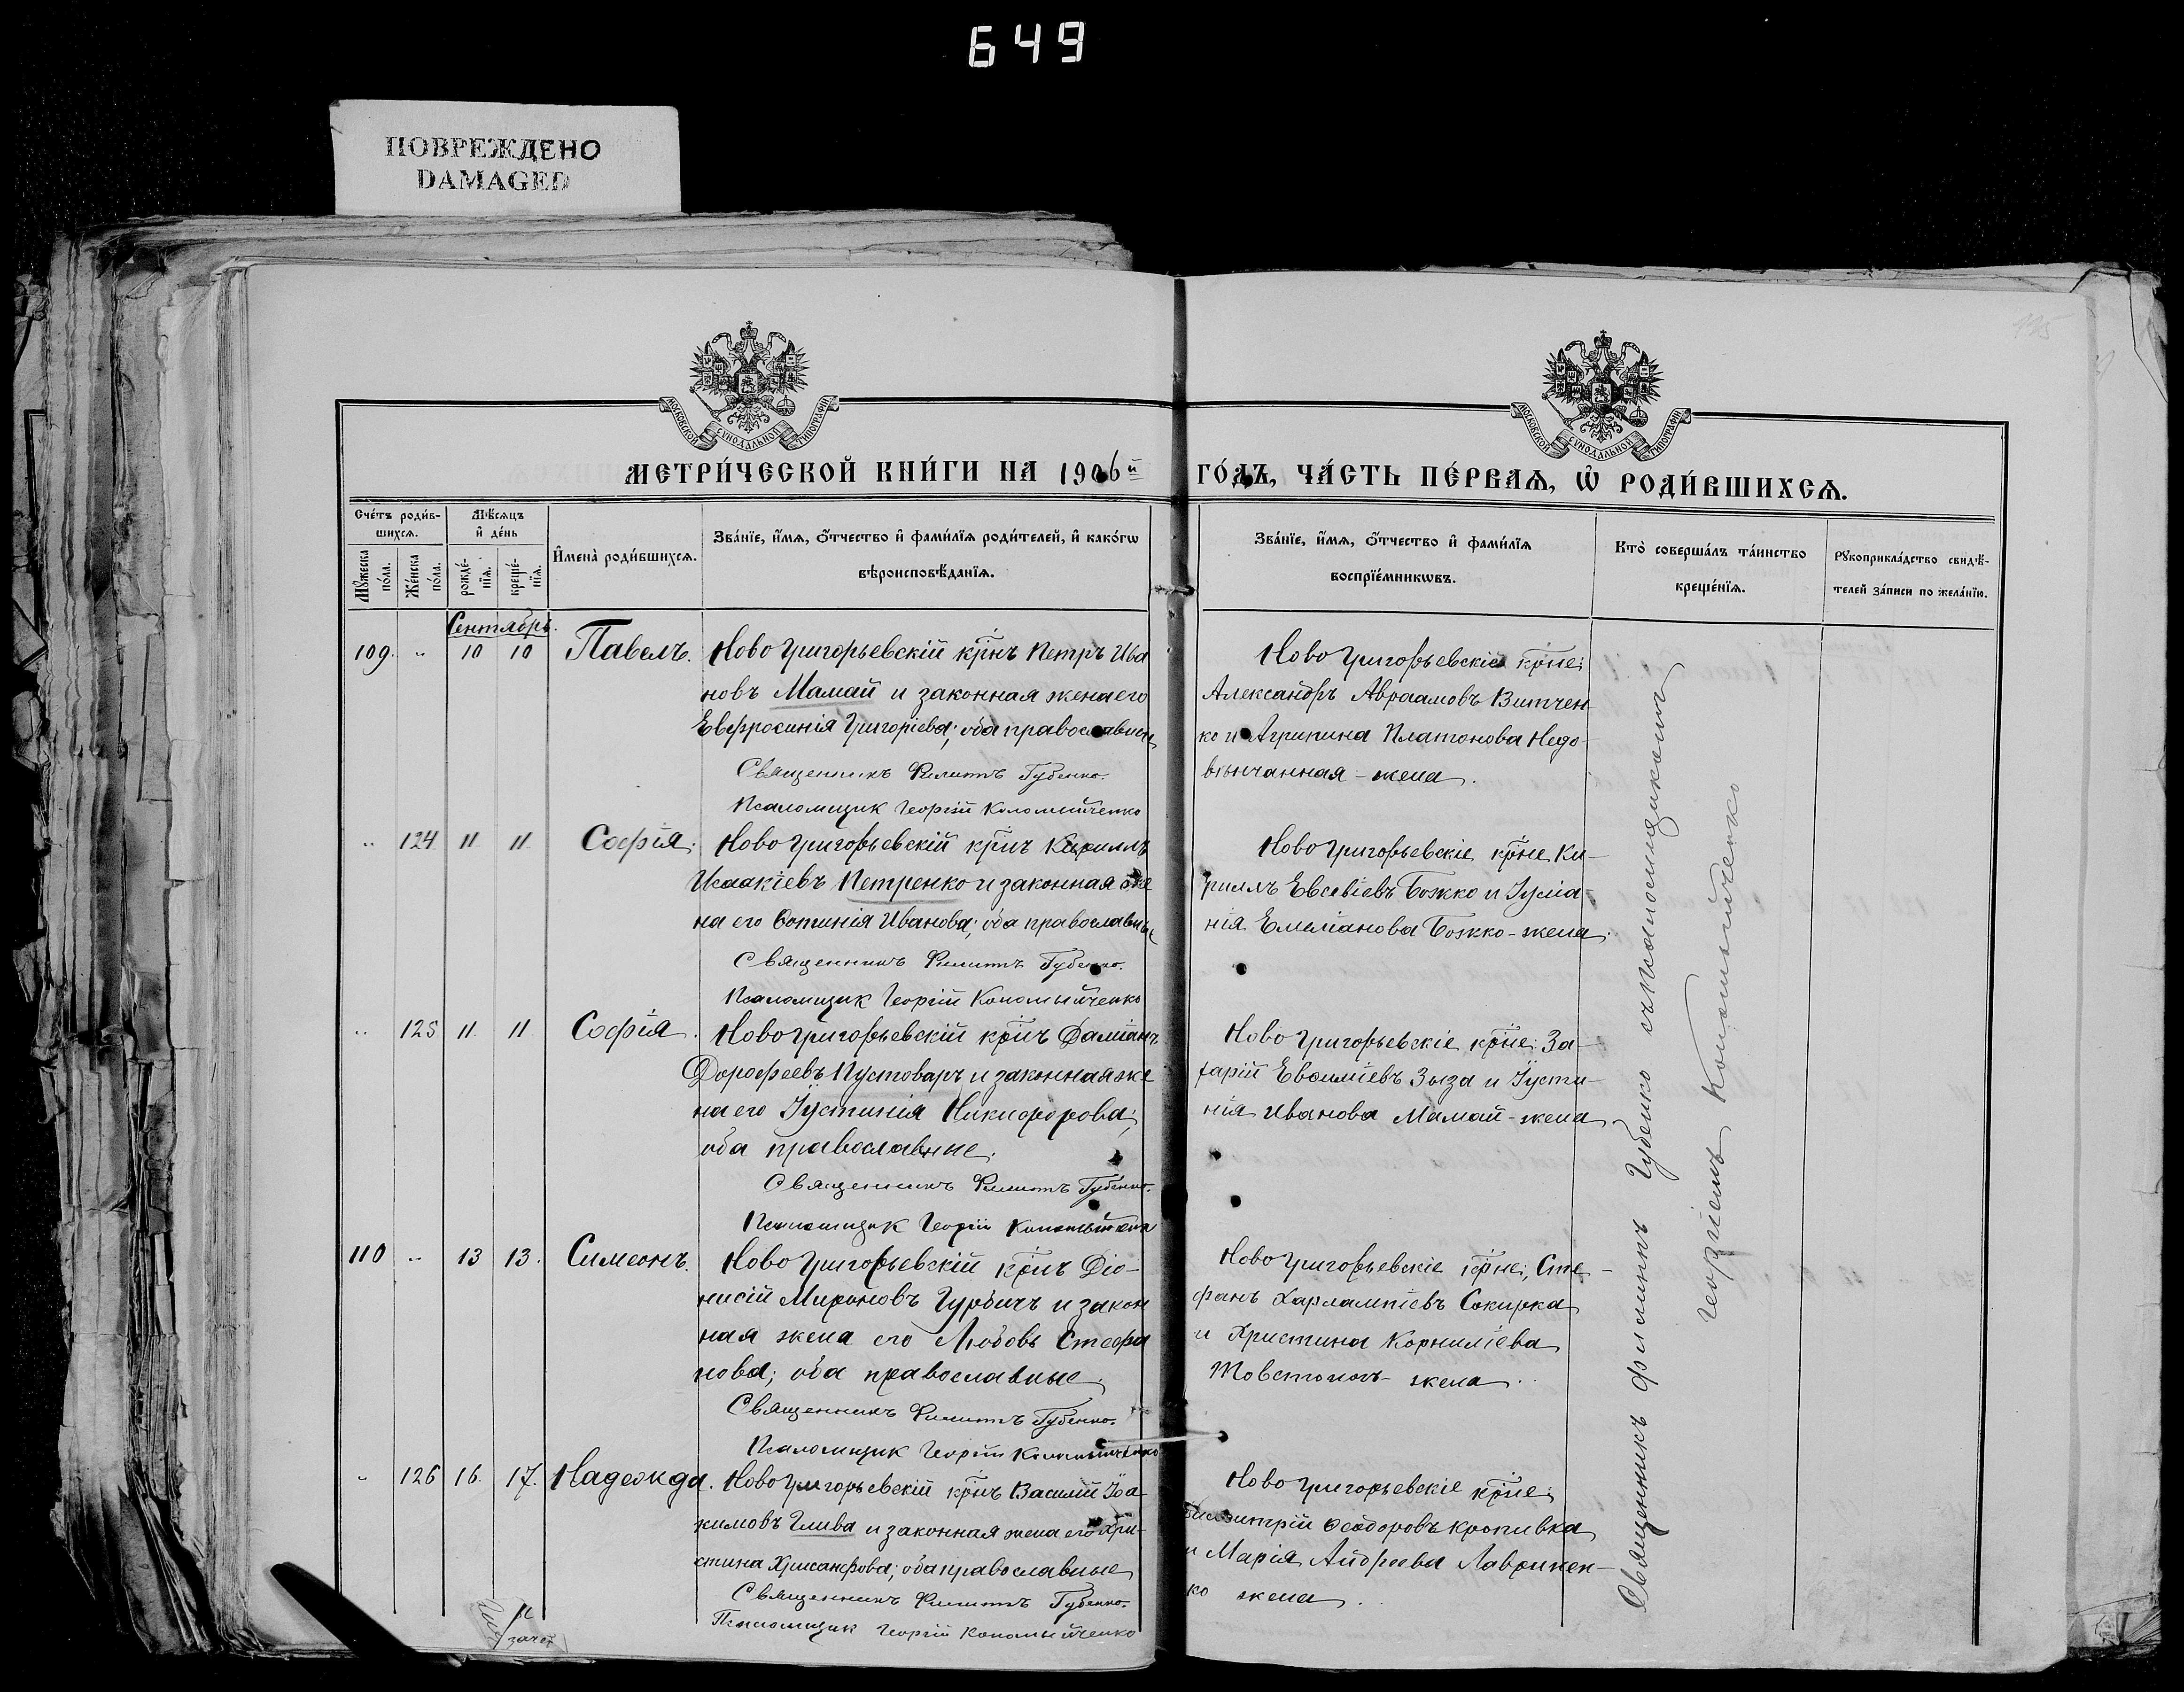 649
ПОВРЕЖДЕНО
DAMAGED
МОСКОВСКОЙ СУНОДАЛЬНОЙ ТИПОГРАФІИ
МОСКОВСКОЙ СУНОДАЛЬНОЙ ТИПОГРАФІИ
МЕТРИ́ЧЕСКОЙ КНИ́ГИ НА 1906й ГО́ДЪ, ЧА́СТЬ ПЕ́РВАѦ, Ѡ҆ РОДИ́ВШИХСѦ.
Сче́тъ роди́в-
шихсѧ.
Мѣ́сѧцъ
и҆ де́нь
Мꙋ́жеска по́ла.
Же́нска по́ла.
рожде́-
нїѧ.
креще́-
нїѧ.
И҆мена̀ роди́вшихсѧ.
Зва́нїе, и҆́мѧ, ѻ҆́тчество и҆ фами́лїѧ роди́телей, и҆ како́гѡ
вѣроисповѣ́данїѧ.
Зва́нїе, и҆́мѧ, ѻ҆́тчество и҆ фами́лїѧ
воспрїе́мникѡвъ.
Кто̀ соверша́лъ та́инство
креще́нїѧ.
Рꙋкоприкла́дство свидѣ́-
телей за́писи по жела́нїю.
Сентябрь.
109. " 10 10 Павелъ. Ново Григорьевскій кр̃нъ Петръ Ива
новъ Мамай и законная жена его
Евфросинія Григоріева; оба православны
Священникъ Филиппъ Губенко.
Псаломщик Георгій Коломыйченко
Ново Григорьевскіе кр̃не:
Александръ Авраамовъ Витчен-
ко и Агрипина Платонова Недо-
вѣнчанная - жена.
" 124 11 11 Софія. Ново Григорьевскій кр̃нъ Кириллъ
Исаакіевъ Петренко и законная же
на его Фотинія Иванова; оба православны
Священникъ Филиппъ Губенко.
Псаломщик Георгій Коломыйченко
Ново Григорьевскіе кр̃не Ки-
риллъ Евсевіевъ Божко и Іуліа-
нія Емеліанова Божко - жена.
" 125 11 11 Софія. Ново Григорьевскій кр̃нъ Даміанъ
Дорофеевъ Пустоваръ и законная же
на его Іустинія Никифорова;
оба православные.
Священникъ Филиппъ Губенко.
Псаломщик Георгій
Ново Григорьевскіе кр̃не: За-
харій Евфиміевъ Зыза и Іусти-
нія Иванова Мамай - жена.
110 " 13 13. Симеонъ. Ново Григорьевскій кр̃нъ Діо-
нисій Мироновъ Гурбичъ и закон
ная жена его Любовь Стефа
нова; оба православные.
Священникъ Филиппъ Губенко.
Псаломщик Георгій Коломыйченко
Ново Григорьевскіе кр̃не; Сте-
фанъ Харлампіевъ Сокирка
и Христина Корниліева
Товстоногъ - жена.
" 126 16. 17. Надежда. Ново Григорьевскій кр̃нъ Василій Іоа-
кимовъ Глива и законная жена его Хри-
стина Хрисанфова; оба православные
Священникъ Филиппъ Губенко.
Псаломщик Георгій Коломыйченко
Ново Григорьевскіе кр̃не:
Димитрій Феодоровъ Кропивка
и Марія Андреева Лавринен-
ко жена.
Священникъ Филиппъ Губенко съ Псаломщикомъ
Георгіемъ Коломыйченко